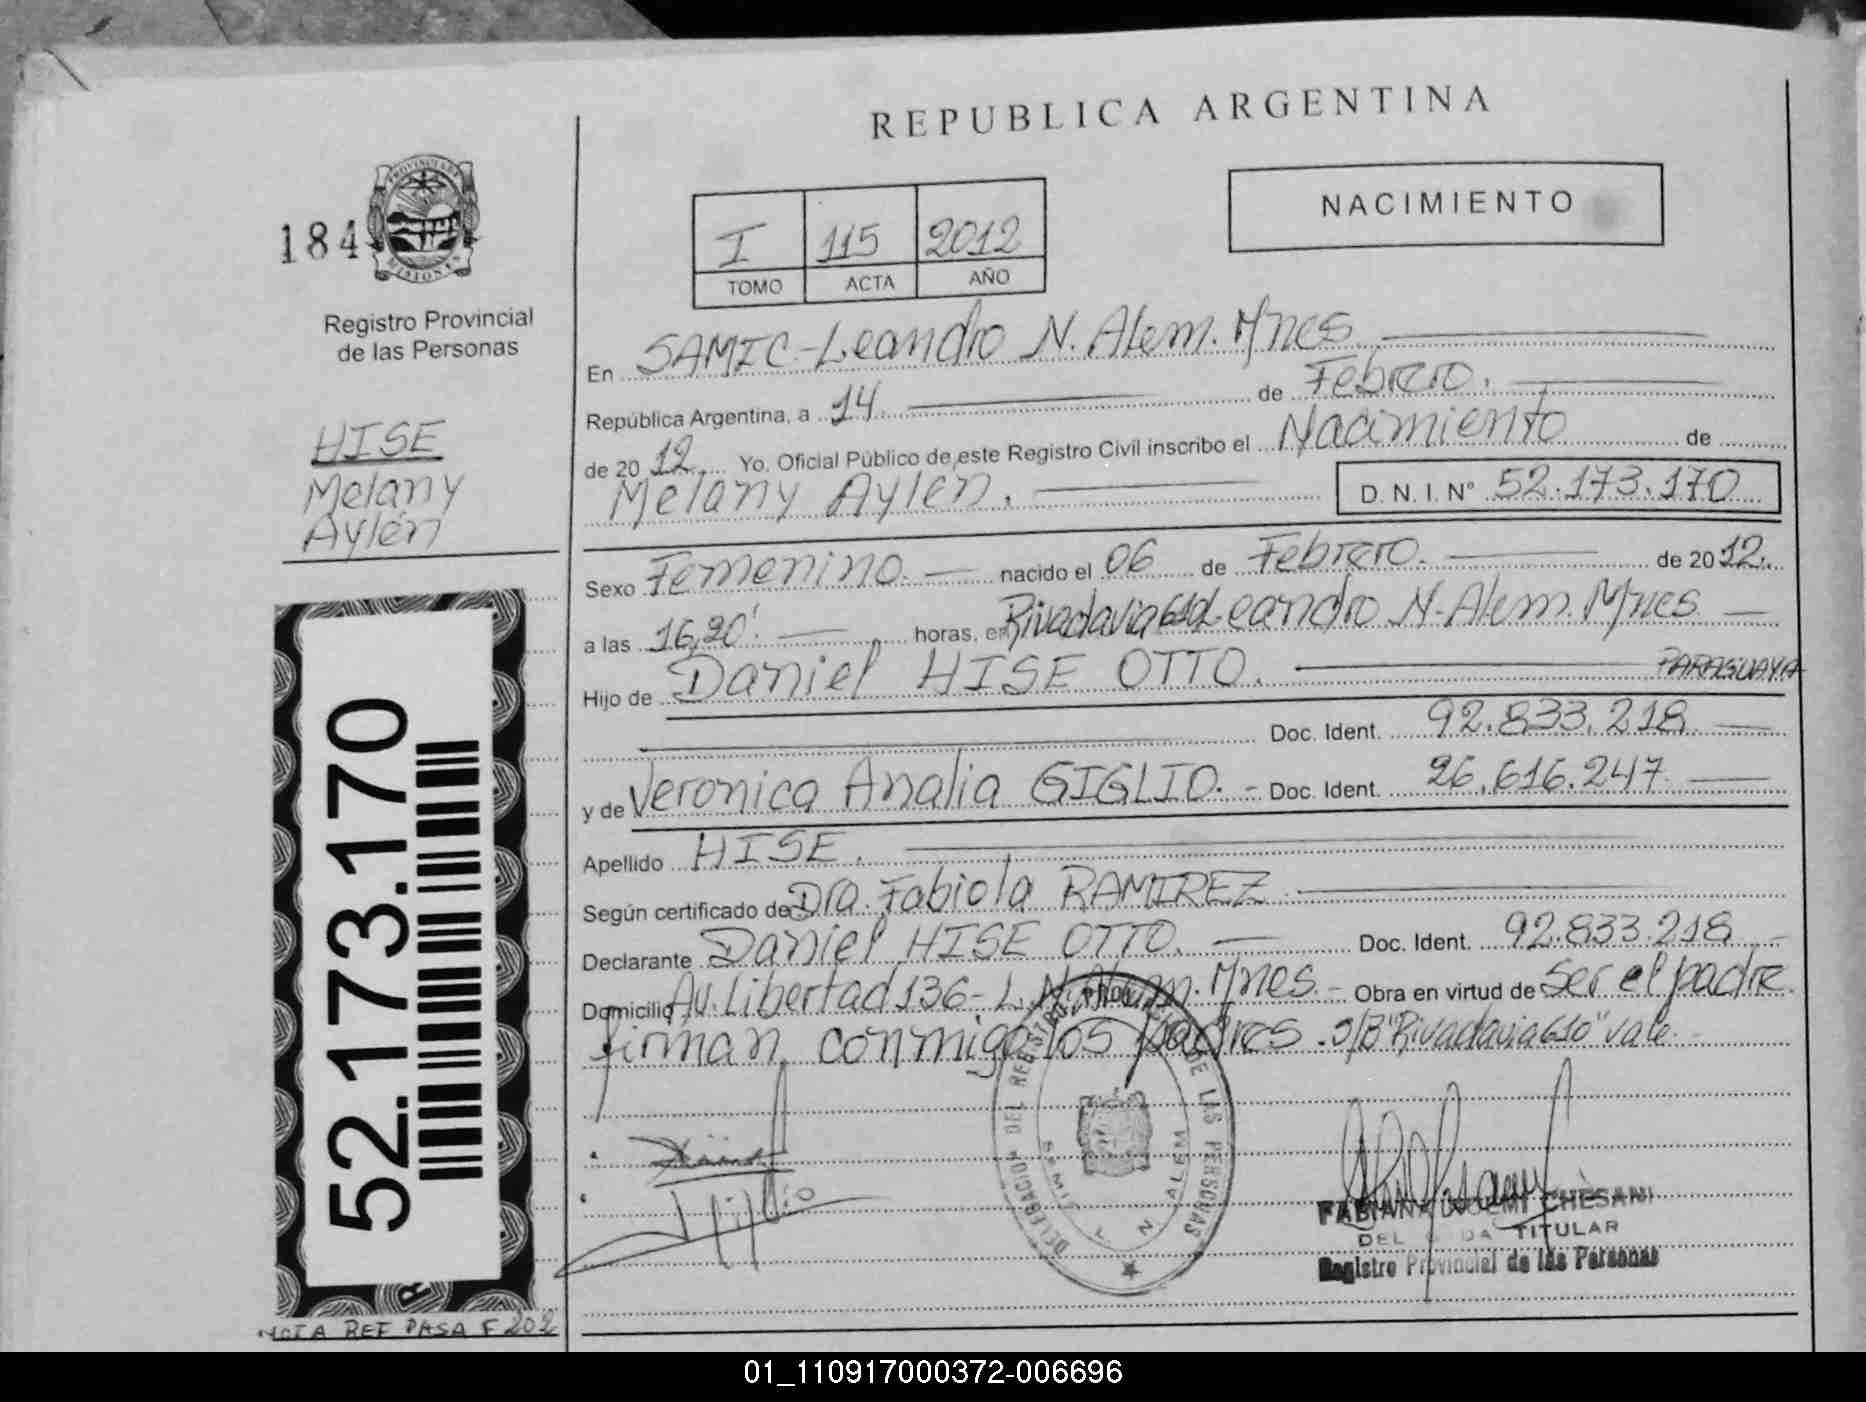 REPUBLICA ARGENTINA
NACIMIENTO
184
PROVINCIA DE MISIONES
Registro Provincial
de las Personas
I 115 2012
TOMO ACTA AÑO
HISE
Melany
Aylén
52.173.170
NOTA REF PASA F 202
En SAMIC-Leandro N. Alem. Mnes
República Argentina, a 14 de Febrero.
de 2012. Yo, Oficial Público de este Registro Civil inscribo el Nacimiento de
Melany Aylén. D.N.I. N° 52.173.170
Sexo Femenino. nacido el 06 de Febrero. de 2012.
a las 16,20'. horas, en Rivadavia 610 Leandro N. Alem. Mnes
Hijo de Daniel HISE OTTO. PARAGUAYA
Doc. Ident. 92.833.218
y de Veronica Analia GIGLIO. - Doc. Ident. 26.616.247
Apellido HISE.
Según certificado de Dra. Fabiola RAMIREZ
Declarante Daniel HISE OTTO. Doc. Ident. 92.833.218
Domicilio Av. Libertad 136 - L. N. Alem. Mnes. - Obra en virtud de Ser el padre
firman conmigo los padres. S/B "Rivadavia 610" vale
DELEGACION DEL REGISTRO PROVINCIAL DE LAS PERSONAS
L. N. ALEM
FABIANA NOEMI CHESANI
TITULAR
Registro Provincial de las Personas
01_110917000372-006696